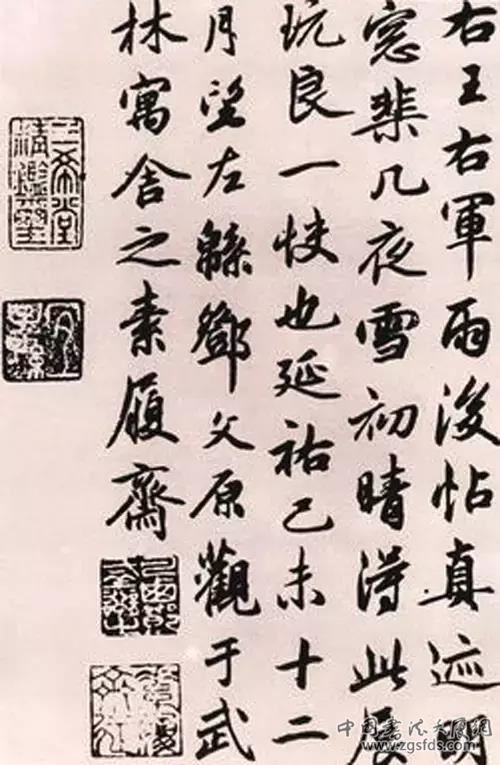 右王右軍雨後帖真迹明
窓棐几夜雪初晴得此展
玩良一快也延祐己未十二
月望左綿鄧文原觀于武
林寓舍之素履齋
三希堂
精鑑璽
宜
子孫
中国书法大展网
www.zgsfds.com